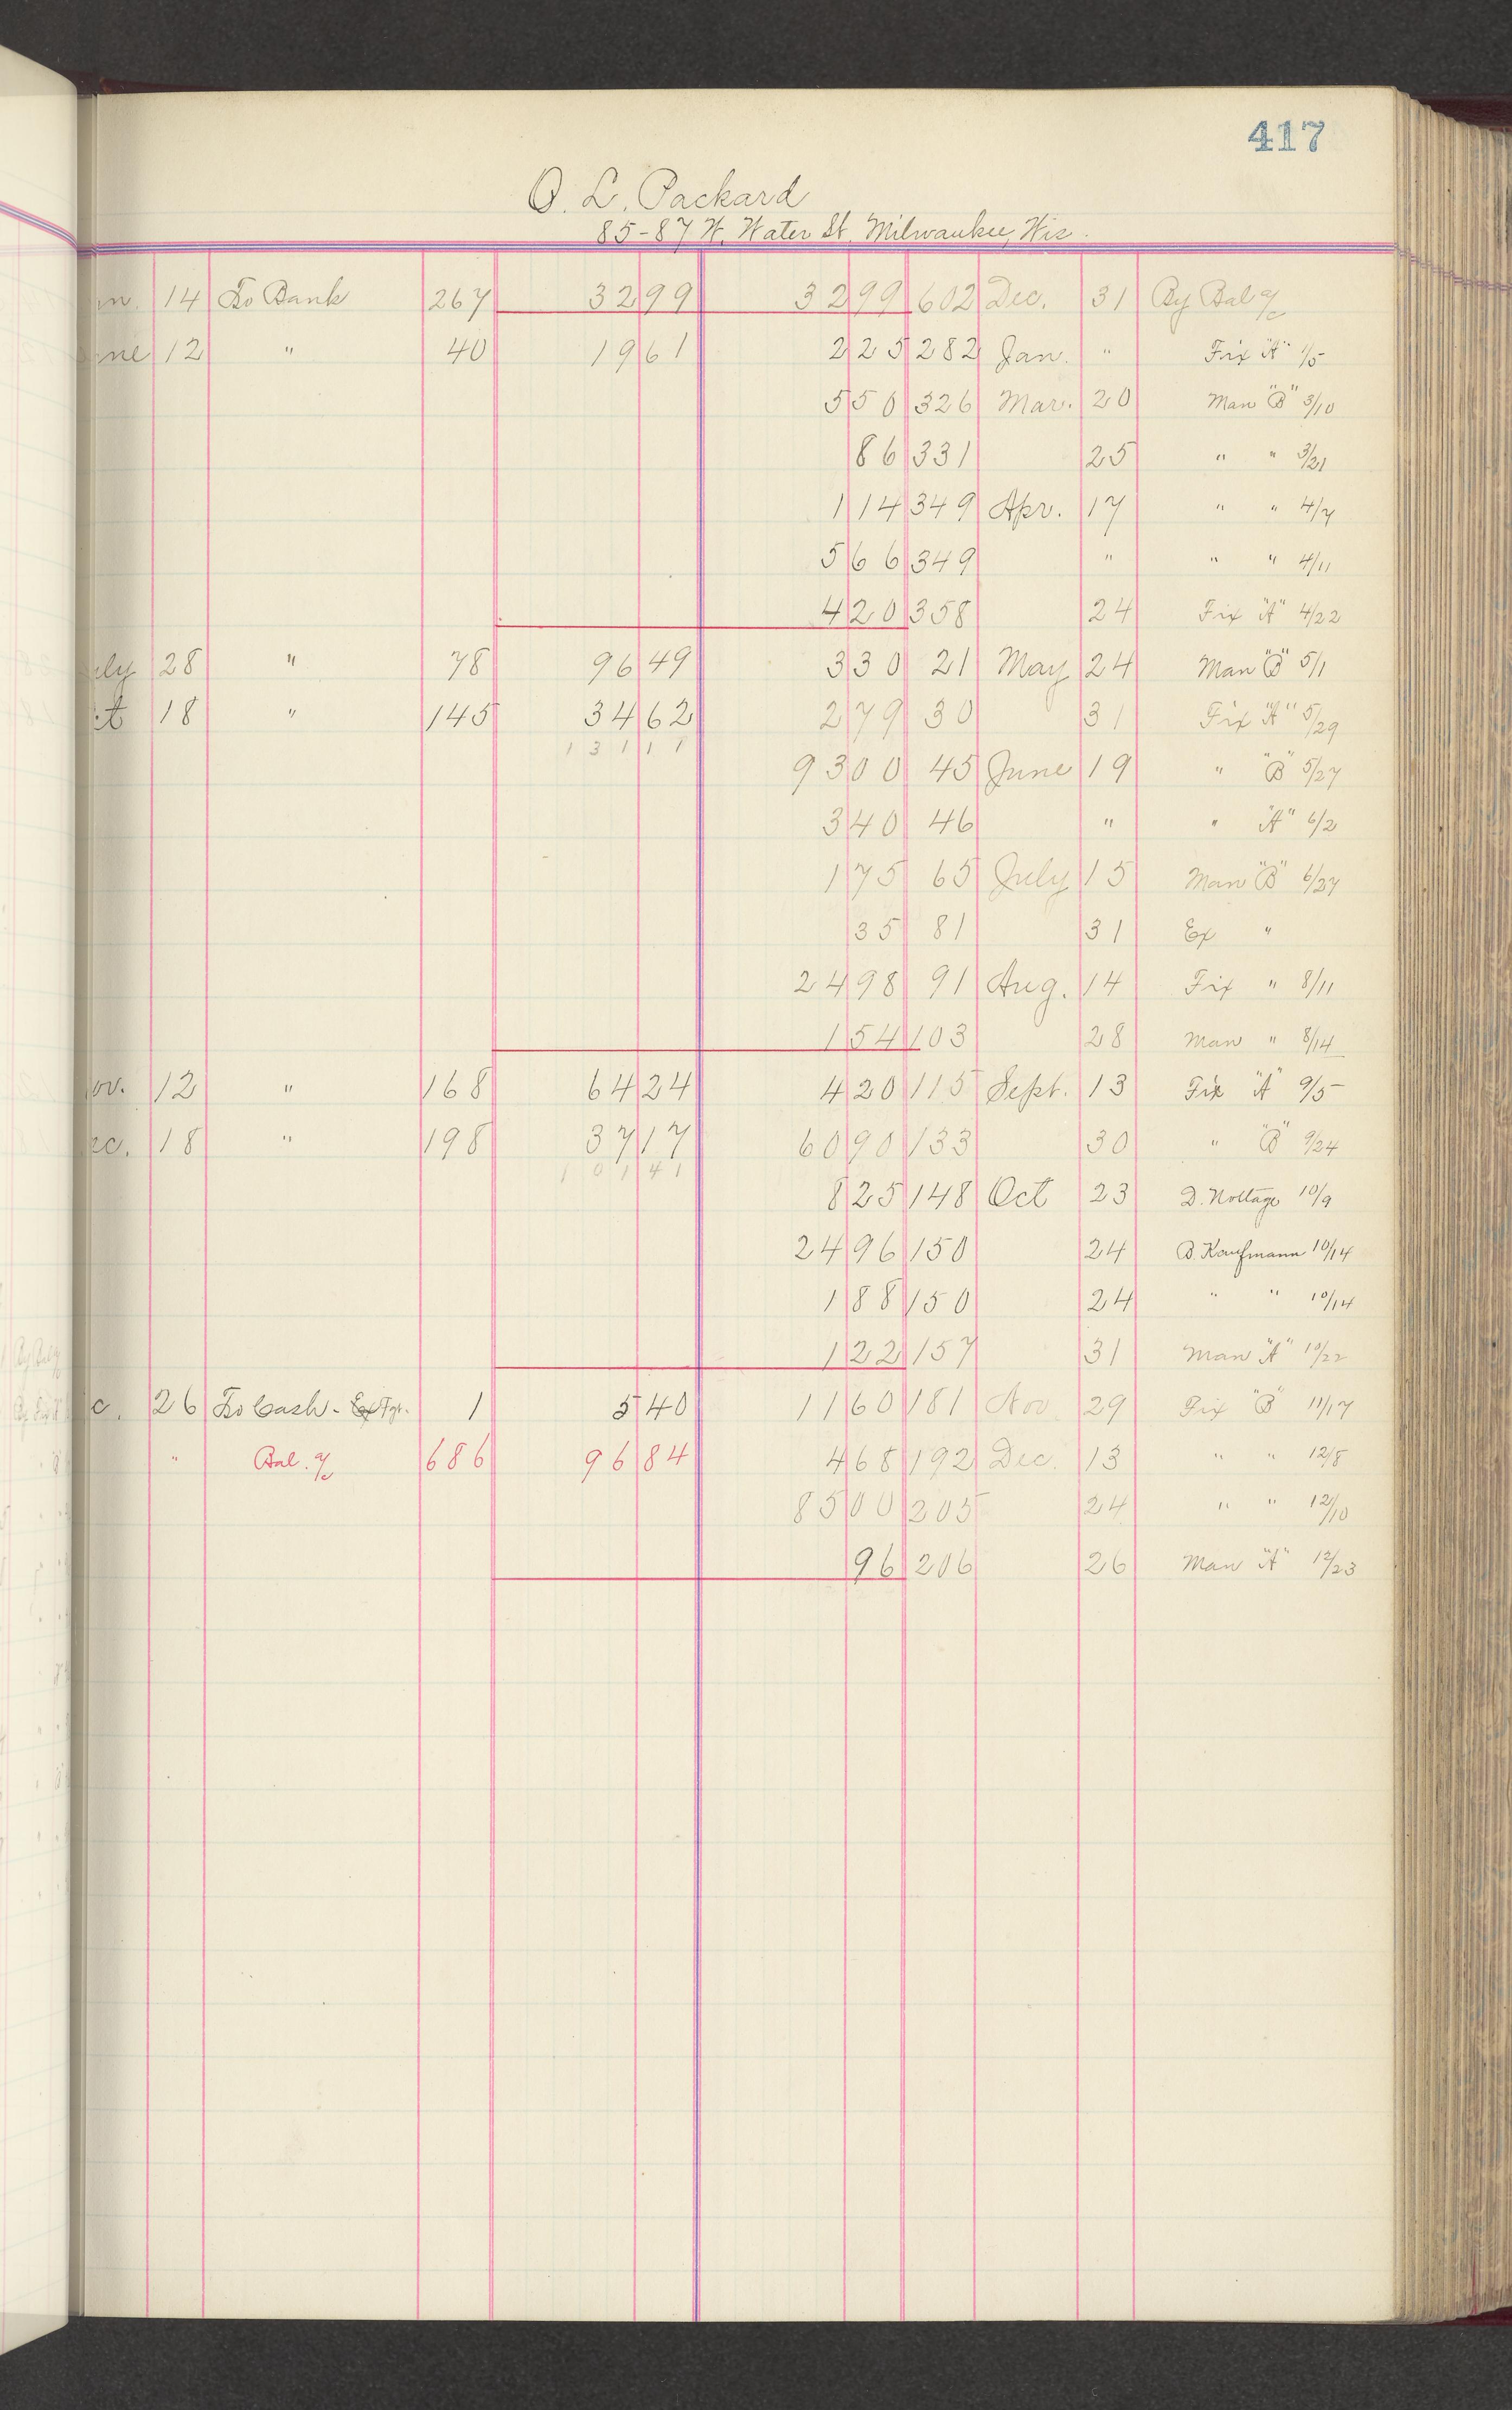 417
O. L. Packard
85-87 W. Water St. Milwaukee, Wis.
n. 14 To Bank 267 32 99 32 99 602 Dec. 31 By Bal a/c
ne 12 " 40 19 61 2 25 282 Jan. " Fix "A" 1/5
5 50 326 Mar. 20 Man "B" 3/10
86 331 25 " " 3/21
1 14 349 Apr. 17 " " 4/7
5 66 349 " " " 4/11
4 20 358 24 Fix "A" 4/22
ly 28 " 78 96 49 3 30 21 May 24 Man "B" 5/1
t 18 " 145 34 62 2 79 30 31 Fix "A" 5/29
131 11
93 00 45 June 19 " "B" 5/27
3 40 46 " " "A" 6/2
1 75 65 July 15 Man "B" 6/27
35 81 31 Ex "
24 98 91 Aug. 14 Fix " 8/11
1 54 103 28 Man " 8/14
ov. 12 " 168 64 24 4 20 115 Sept. 13 Fix "A" 9/5
ec. 18 " 198 37 17 60 90 133 30 " "B" 9/24
101 41
8 25 148 Oct 23 D. Nottage 10/9
24 96 150 24 B. Kaufmann 10/14
1 88 150 24 " " 10/14
1 22 157 31 Man "A" 10/22
c. 26 To Cash - Ex Fgt. 1 5 40 11 60 181 Nov 29 Fix "B" 11/17
" Bal. a/c 686 96 84 4 68 192 Dec. 13 " " 12/8
85 00 205 24 " " 12/10
96 206 26 Man "A" 12/23